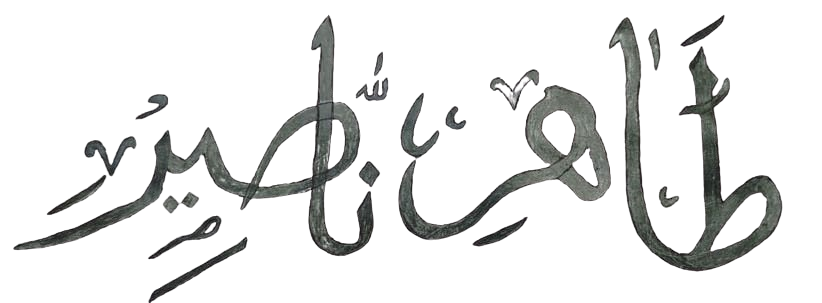 طَاهِر نَّاصِيرُ